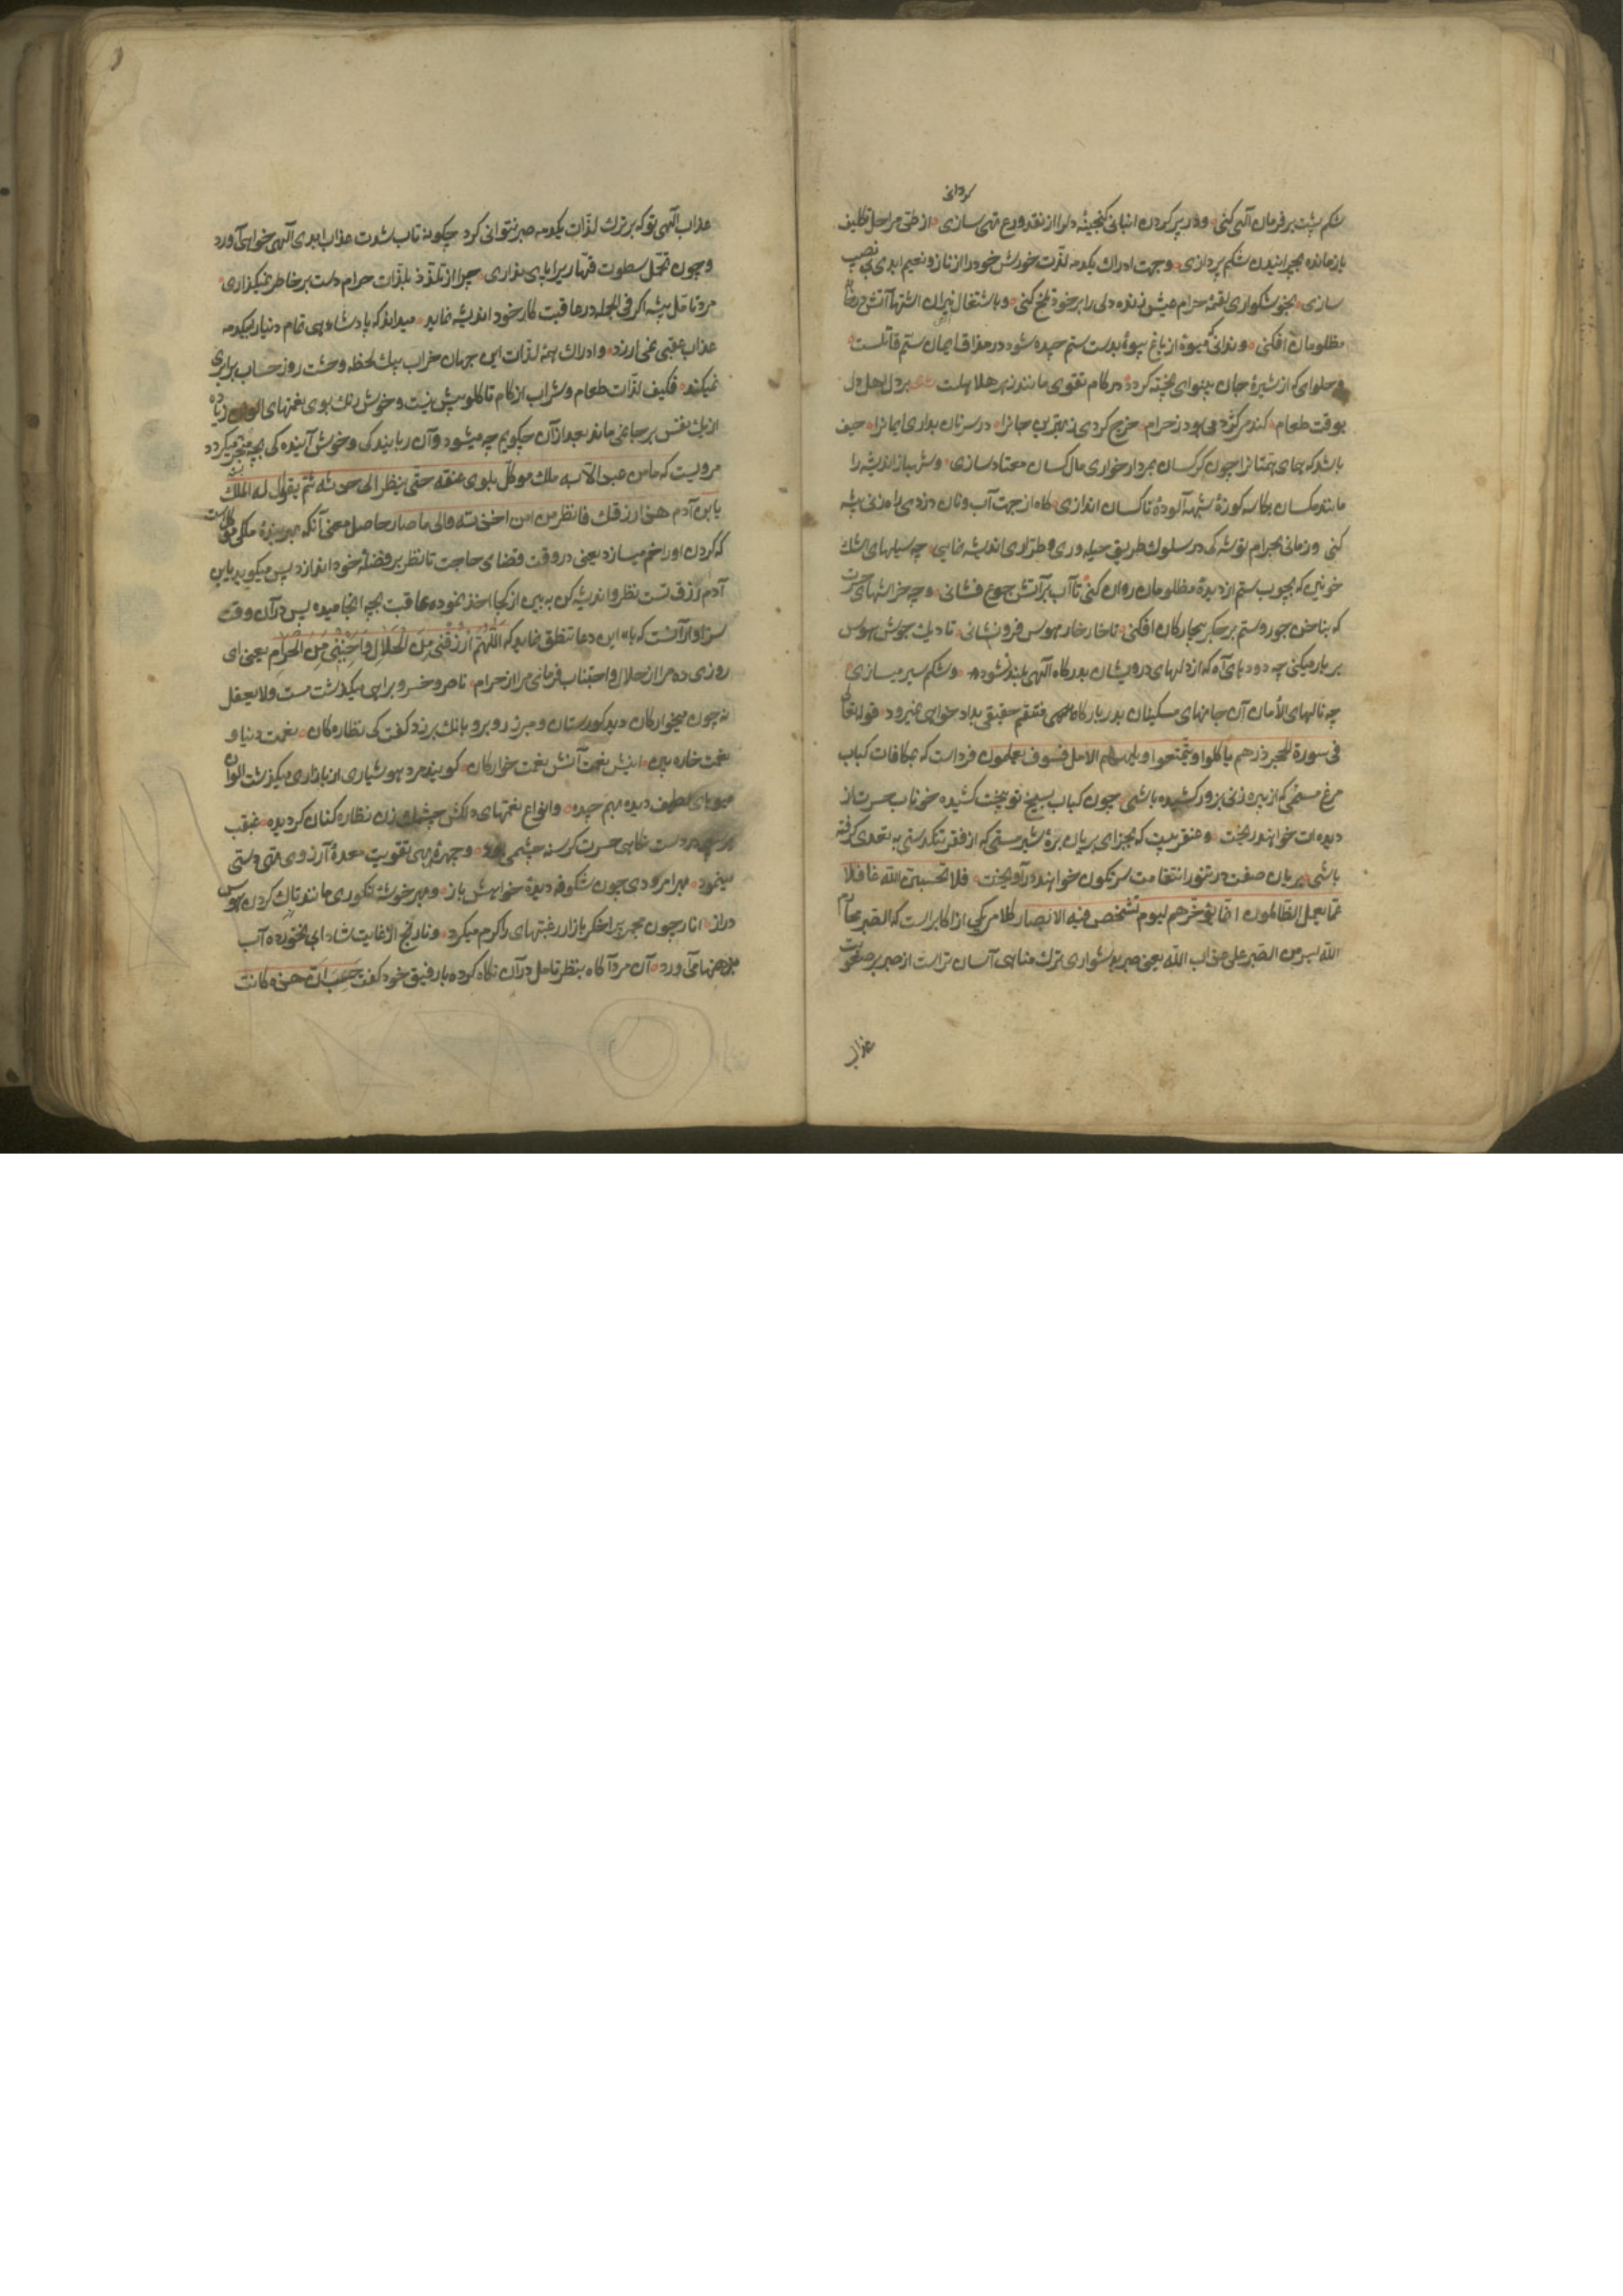 گردانی
شکم پشت بر فرمان آلهی کنی و در پر کردن انبانی گنجینهٔ دل را از نقد ورع تهی سازی از طی مراحل تکلیف
بازمانده بچرانیدن شکم پردازی و جهت ادراک یکدمه لذّت خورش خود را از ناز و نعیم ابدی بی نصیب
سازی بخوشکواری لقمهٔ حرام عیش زنده دلی را بر خود تلخ کنی و باشتعال نیران اشتها آتش در
مظلومان افکنی و ندانی که میوهٔ از باغ بیوهٔ بدست ستم چیده شود در مذاق ایمان ستم قاتلست
و حلوای که از شیرهٔ جان بینوای پخته کردد در کام تقوی مانند زهر هلاهلست بر دل اهل دل
بوقت طعام کند مرکز دمی بود ز حرام خرج کردی ز بهترین جا نرا در سر نان بداری ایمانرا حیف
باشد که همای همّتانرا چون کرکسان بمردار خواری مال کسان معتاد سازی و شهباز اندیشه را
مانند مکسان بکاسه کوزهٔ شبهه آلودهٔ ناکسان اندازی کاه از جهت آب و نان دزدی راه زنی پیشه
کنی و زمانی بحرام توشه کی در سلوک طریق حیله وری و طرّاری اندیشه نمایی چه سیلهای اشک
خونین که بچوب ستم از دیدهٔ مظلومان روان کنی تا آب بر آتش جوع فشانی و چه خراشهای حسرت
که بناخن جور و ستم بر جکر بیچارکان افکنی تا خار خار هوس فرو نشانی تا دیک جوش هوس
بر بار میکنی چه دودهای آه که از دلهای درویشان بدرکاه آلهی بلند نشود و شکم سیر میسازی
چه نالهای الأمان آن جانهای مسکینان بدربارکاه منتقم حقیقی بداد خواهی نمیرود قوله تعالی
فی سورة الحجر ذرهم یأکلوا و یتمتّعوا و یلههم الامل فسوف یعلمون فرداست که بمکافات کباب
مرغ مسمنی کم از پیره زنی بزور کشیده باشی چون کباب بسیخ توبیخت کشیده خوناب حسرت از
دیده‌ات خواهند ریخت و عنقریبست که بجزای بریان برهٔ شیر مستی که از فقر تنکدستی به تعدی کرفته
باشی بریان صفت در تنور انتقامت سرنکون خواهند در آویخت فلا تحسبنّ الله غافلا
عمّا یعمل الظّالمون انّما یؤخّرهم لیوم تشخص فیه الابصار کلام یکی از اکابر است که الصّبر عن محارم
الله ایسر من الصّبر علی عذاب الله یعنی صبر بدشواری ترک مناهی آسان تر است از صبر بر صعوبت
عذاب
عذاب آلهی تو که بر ترک لذّات یکدمه صبر نتوانی کرد چکونه تاب شدت عذاب ابدی آلهی خواهی آورد
و چون تحمّل سطوت قهّاریرا پای نداری چرا از تلذّذ بلذّات حرام دست بر خاطر نمیکذاری
مرد تامّل پیشه اکر فی الجمله در عاقبت کار خود اندیشه نماید میداند که پادشاهی تمام دنیا بیکدمه
عذاب عقبی نمی ارزد و ادراک همهٔ لذّات این جهان خراب بیک لحظه وحشت روز حساب برابری
نمیکند فکیف لذّات طعام و شراب از کام تا کلو بیش نیست و خوش رنک بوی نعمتهای الوان زیاده
از یک نفس بر جا نمی ماند بعد از آن چکویم چه میشود و آن ربایندکی و خوش آیندکی بچه منجر میکردد
مرویست که ما من عبد الّا به ملک موکّل یلوی عنقه حتّی ینظر الی حدثه ثمّ یقول له الملک
یا بن آدم هذا رزقک فانظر من این اخذته و الی ما صار حاصل معنی آنکه هر بندهٔ ملکی موکلست
که کردن او را خم میسازد یعنی در وقت قضای حاجت تا نظر بر فضلهٔ خود اندازد پس میکوید یا بن
آدم رزق تست نظر و اندیشه کن به بین از کجا اخذ نموده عاقبت بچه انجامیده پس در آن وقت
سزاوار آنست که باین دعا تنطّق نماید که اللّهمّ ارزقنی من الحلال و اجنبنی من الحرام یعنی ای
روزی ده مرا از حلال و اجتناب فرمای مرا از حرام ناصر و خسرو براهی میکذشت مست ولا یعقل
نه چون میخوارکان دید کورستان و مبرز روبرو بانک برزد کفت کی نظاره کان نعمت دنیا و
نعمت خواره بین اینش نعمت آنش نعمت خوارکان کویند مرد هوشیاری از بازاری میکذشت الوان
میوهای لطیف دیده بهم چیده و انواع نعمتهای دلکش چشمک زن نظاره کنان کردیده غبغب
دست نکاهی حسرت کرسنه چشمی و چهرهٔ بهی تقویت معدهٔ آرزوی دستی
مینمود بهر امرودی چون شکوفه دیدهٔ خواهش باز و بهر خوشهٔ انکوری مانند تاک کردن هوس
دراز انار چون مجمر پر اخکر بازار رغبتهای را کرم میکرد و نارنج از غایت شادابی آب
بدهنها می آورد آن مرد آکاه بنظر تامل در آن نکاه کرده با رفیق خود کفت کانت